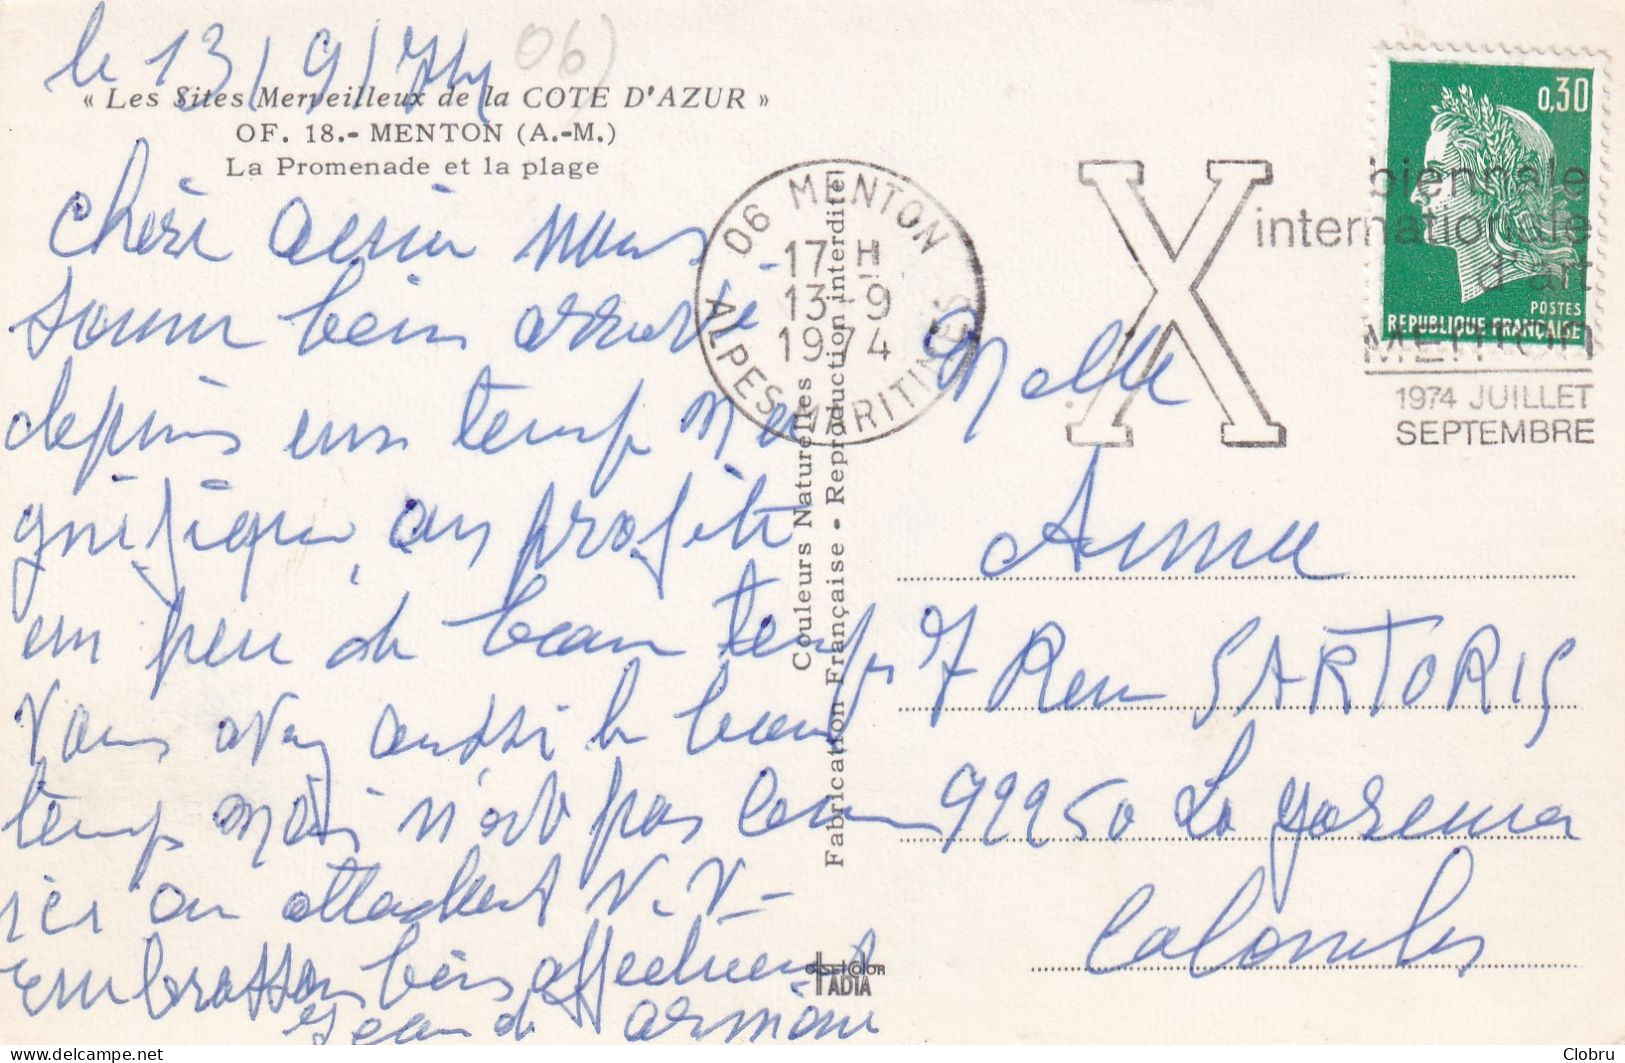 le 13/9/74
06)
« Les Sites Merveilleux de la COTE D'AZUR »
OF. 18.- MENTON (A.-M.)
La Promenade et la plage
chère nous
somm bein arrivé
depuis un temp ma
gnifique, on profite
un peu de beau temps
Vous avez aussi le beau
temp mais n'est pas comm
ici en attendent N. V.
Embrassons bien affectueusement
Jean
06 MENTON
17 H
13-9
1974
ALPES MARITIMES
X
biennale
internationale
d'art
menton
1974 JUILLET
SEPTEMBRE
0,30
POSTES
REPUBLIQUE FRANÇAISE
Couleurs Naturelles
Fabrication Française • Reproduction interdite
Melle
7 Rue SARTORIS
92250 La Garenne
Colombes
OFFSET-COLOR
TADIA
delcampe.net
Clobru